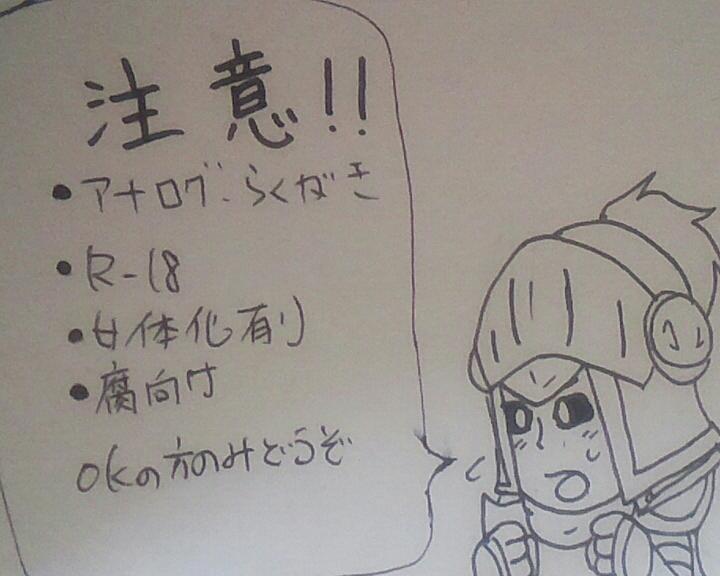 注意!!
●アナログ・らくがき
●R-18
●女体化有り
●腐向け
OKの方のみどうぞ